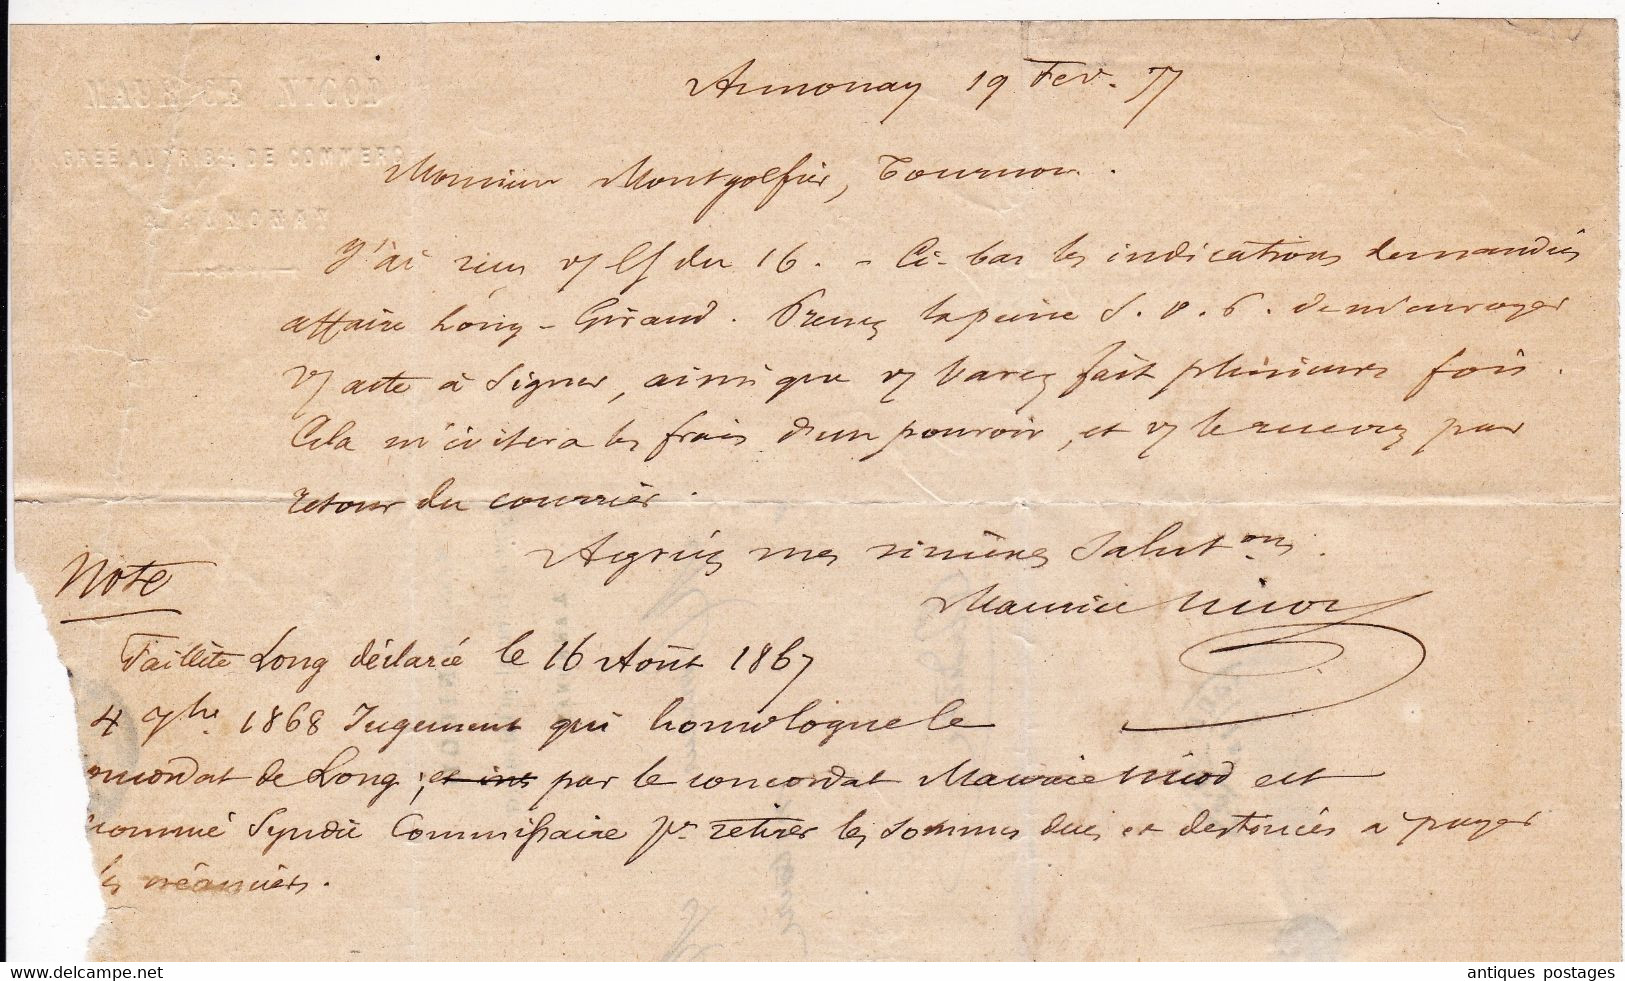 Annonay 19 Fev. 77
Monsieur Montgolfier, Tournon.
J'ai reçu v/ l/ du 16. - Ci-bas les indications demandées
affaire Long - Giraud. Prenez la peine S. V. P. de m'envoyer
v/ acte à signer, ainsi que v/ l'avez fait plusieurs fois.
Cela m'évitera les frais d'un pouvoir, et v/ le recevrez par
retour du courrier.
Agréez mes sincères Salutons.
Maurice Nicod
Note
Faillite Long déclarée le 16 Août 1867
4 7bre 1868 Jugement qui homologue le
oncordat de Long; par le concordat Maurice Nicod est
nommé Syndic Commissaire pr retirer les sommes dues et destinées à payer
les créanciers.
MAURICE NICOD
AGRÉÉ AU TRIBal DE COMMERCE
ANNONAY
antiques postages
www.delcampe.net